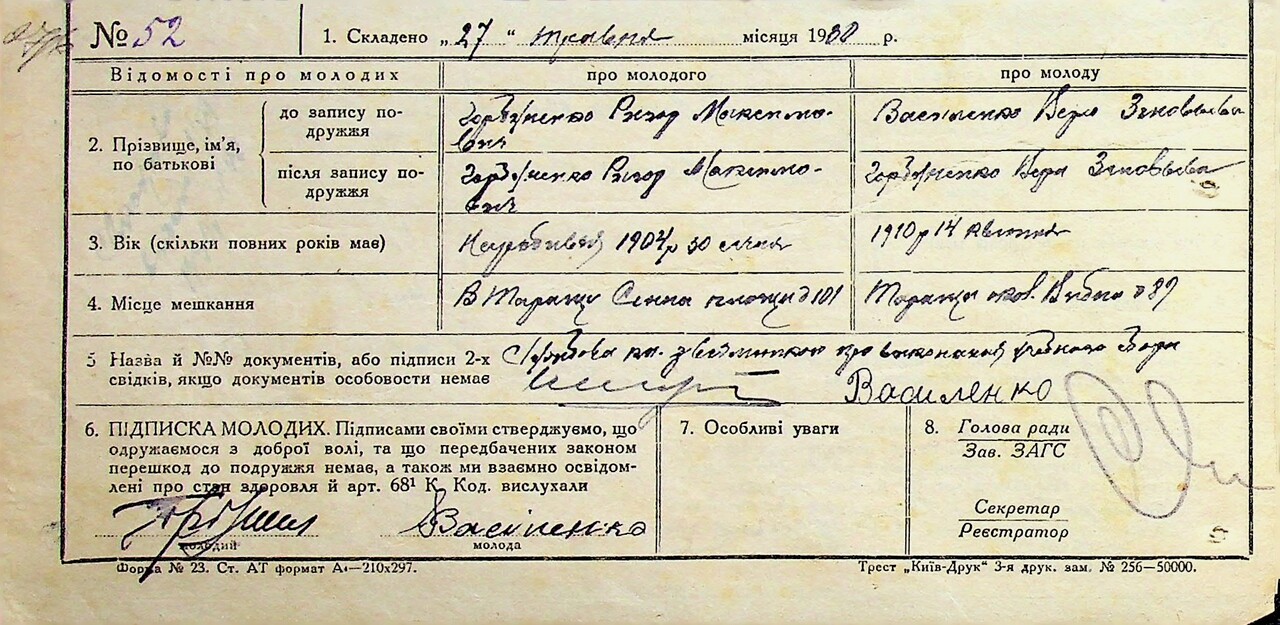 № 52
1. Складено „27“ травня місяця 1930 р.
Відомості про молодих
про молодого
про молоду
2. Прізвище, ім'я, по батькові
до запису по-
дружжя
Горбуненко Макси­мо-
вич
Василенко Вера
після запису по-
дружжя
Горбуненко Максимо-
вич
Горбуненко Вера
3. Вік (скільки повних років має)
1904 р 30 січня
1910 р 14 квітня
4. Місце мешкання
В Тараще Сенна площа д 101
Тараща д 89
5 Назва й №№ документів, або підписи 2-х
свідків, якщо документів особовости немає
про виконання учбового збору
Василенко
6. ПІДПИСКА МОЛОДИХ. Підписами своїми стверджуємо, що
одружаємося з доброї волі, та що передбачених законом
перешкод до подружжя немає, а також ми взаємно освідом-
лені про стан здоровля й арт. 68¹ К. Код. вислухали
Василенко
молодий
молода
7. Особливі уваги
8. Голова ради
Зав. ЗАГС
Секретар
Реєстратор
Форма № 23. Ст. АТ формат А4—210х297.
Трест „Київ-Друк“ 3-я друк. зам. № 256—50000.